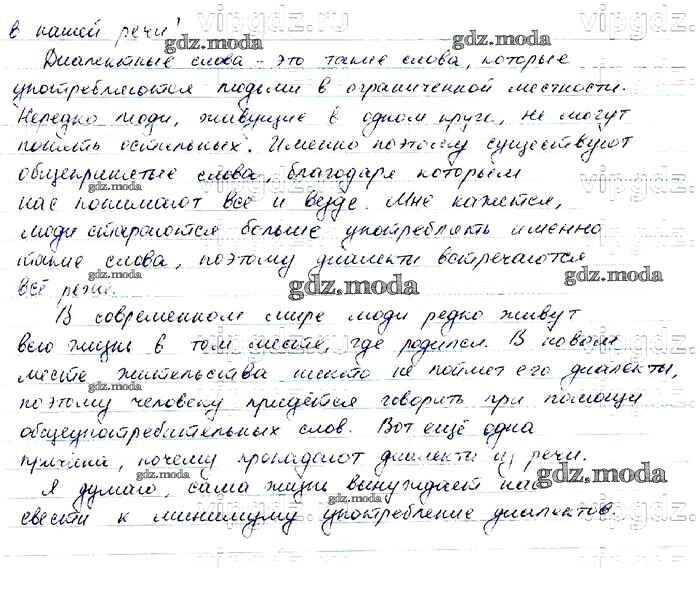 в нашей речи?
Диалектные слова - это такие слова, которые
употребляются людьми в ограниченной местности.
Нередко люди, живущие в одном круге, не могут
понять остальных. Именно поэтому существуют
общепринятые слова, благодаря которым
нас понимают все и везде. Мне кажется,
люди стараются больше употреблять именно
такие слова, поэтому диалекты встречаются
всё реже.
В современном мире люди редко живут
всю жизнь в том месте, где родился. В новом
месте жительства никто не поймет его диалекты,
поэтому человеку придётся говорить при помощи
общеупотребительных слов. Вот ещё одна
причина, почему пропадают диалекты из речи.
Я думаю, сама жизнь вынуждает нас
свести к минимуму употребление диалектов.
vipgdz.ru
gdz.moda